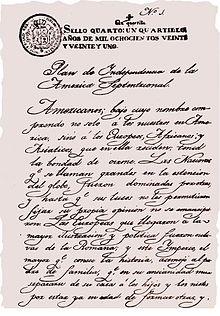 Nº 1
Un quartillo
SELLO QUARTO: UN QUARTILLO:
AÑOS DE MIL OCHOCIENTOS VEINTE
Y VEINTE Y UNO.
Plan de Independencia de la
America Septentrional.
Americanos, bajo cuyo nombre com-
prendo no solo a los nacidos en Ame-
rica, sino a los Europeos, Africanos y
Asiaticos que en ella residen: tened
la bondad de oirme. Las Naciones
que se llaman grandes en la estension
del globo, fueron dominadas por otras
y hasta que sus luces no les permitieron
fijar su propia opinion no se emancipa-
ron. Las Europeas que llegaron a la
mayor ilustracion y politica fueron escla-
vas de la Romana, y este Imperio el
mayor que conoce la historia, asemejó al pa-
dre de familia, que en su ancianidad mira
separarse de su casa a los hijos y los nietos
por estar ya en edad de formar otras y